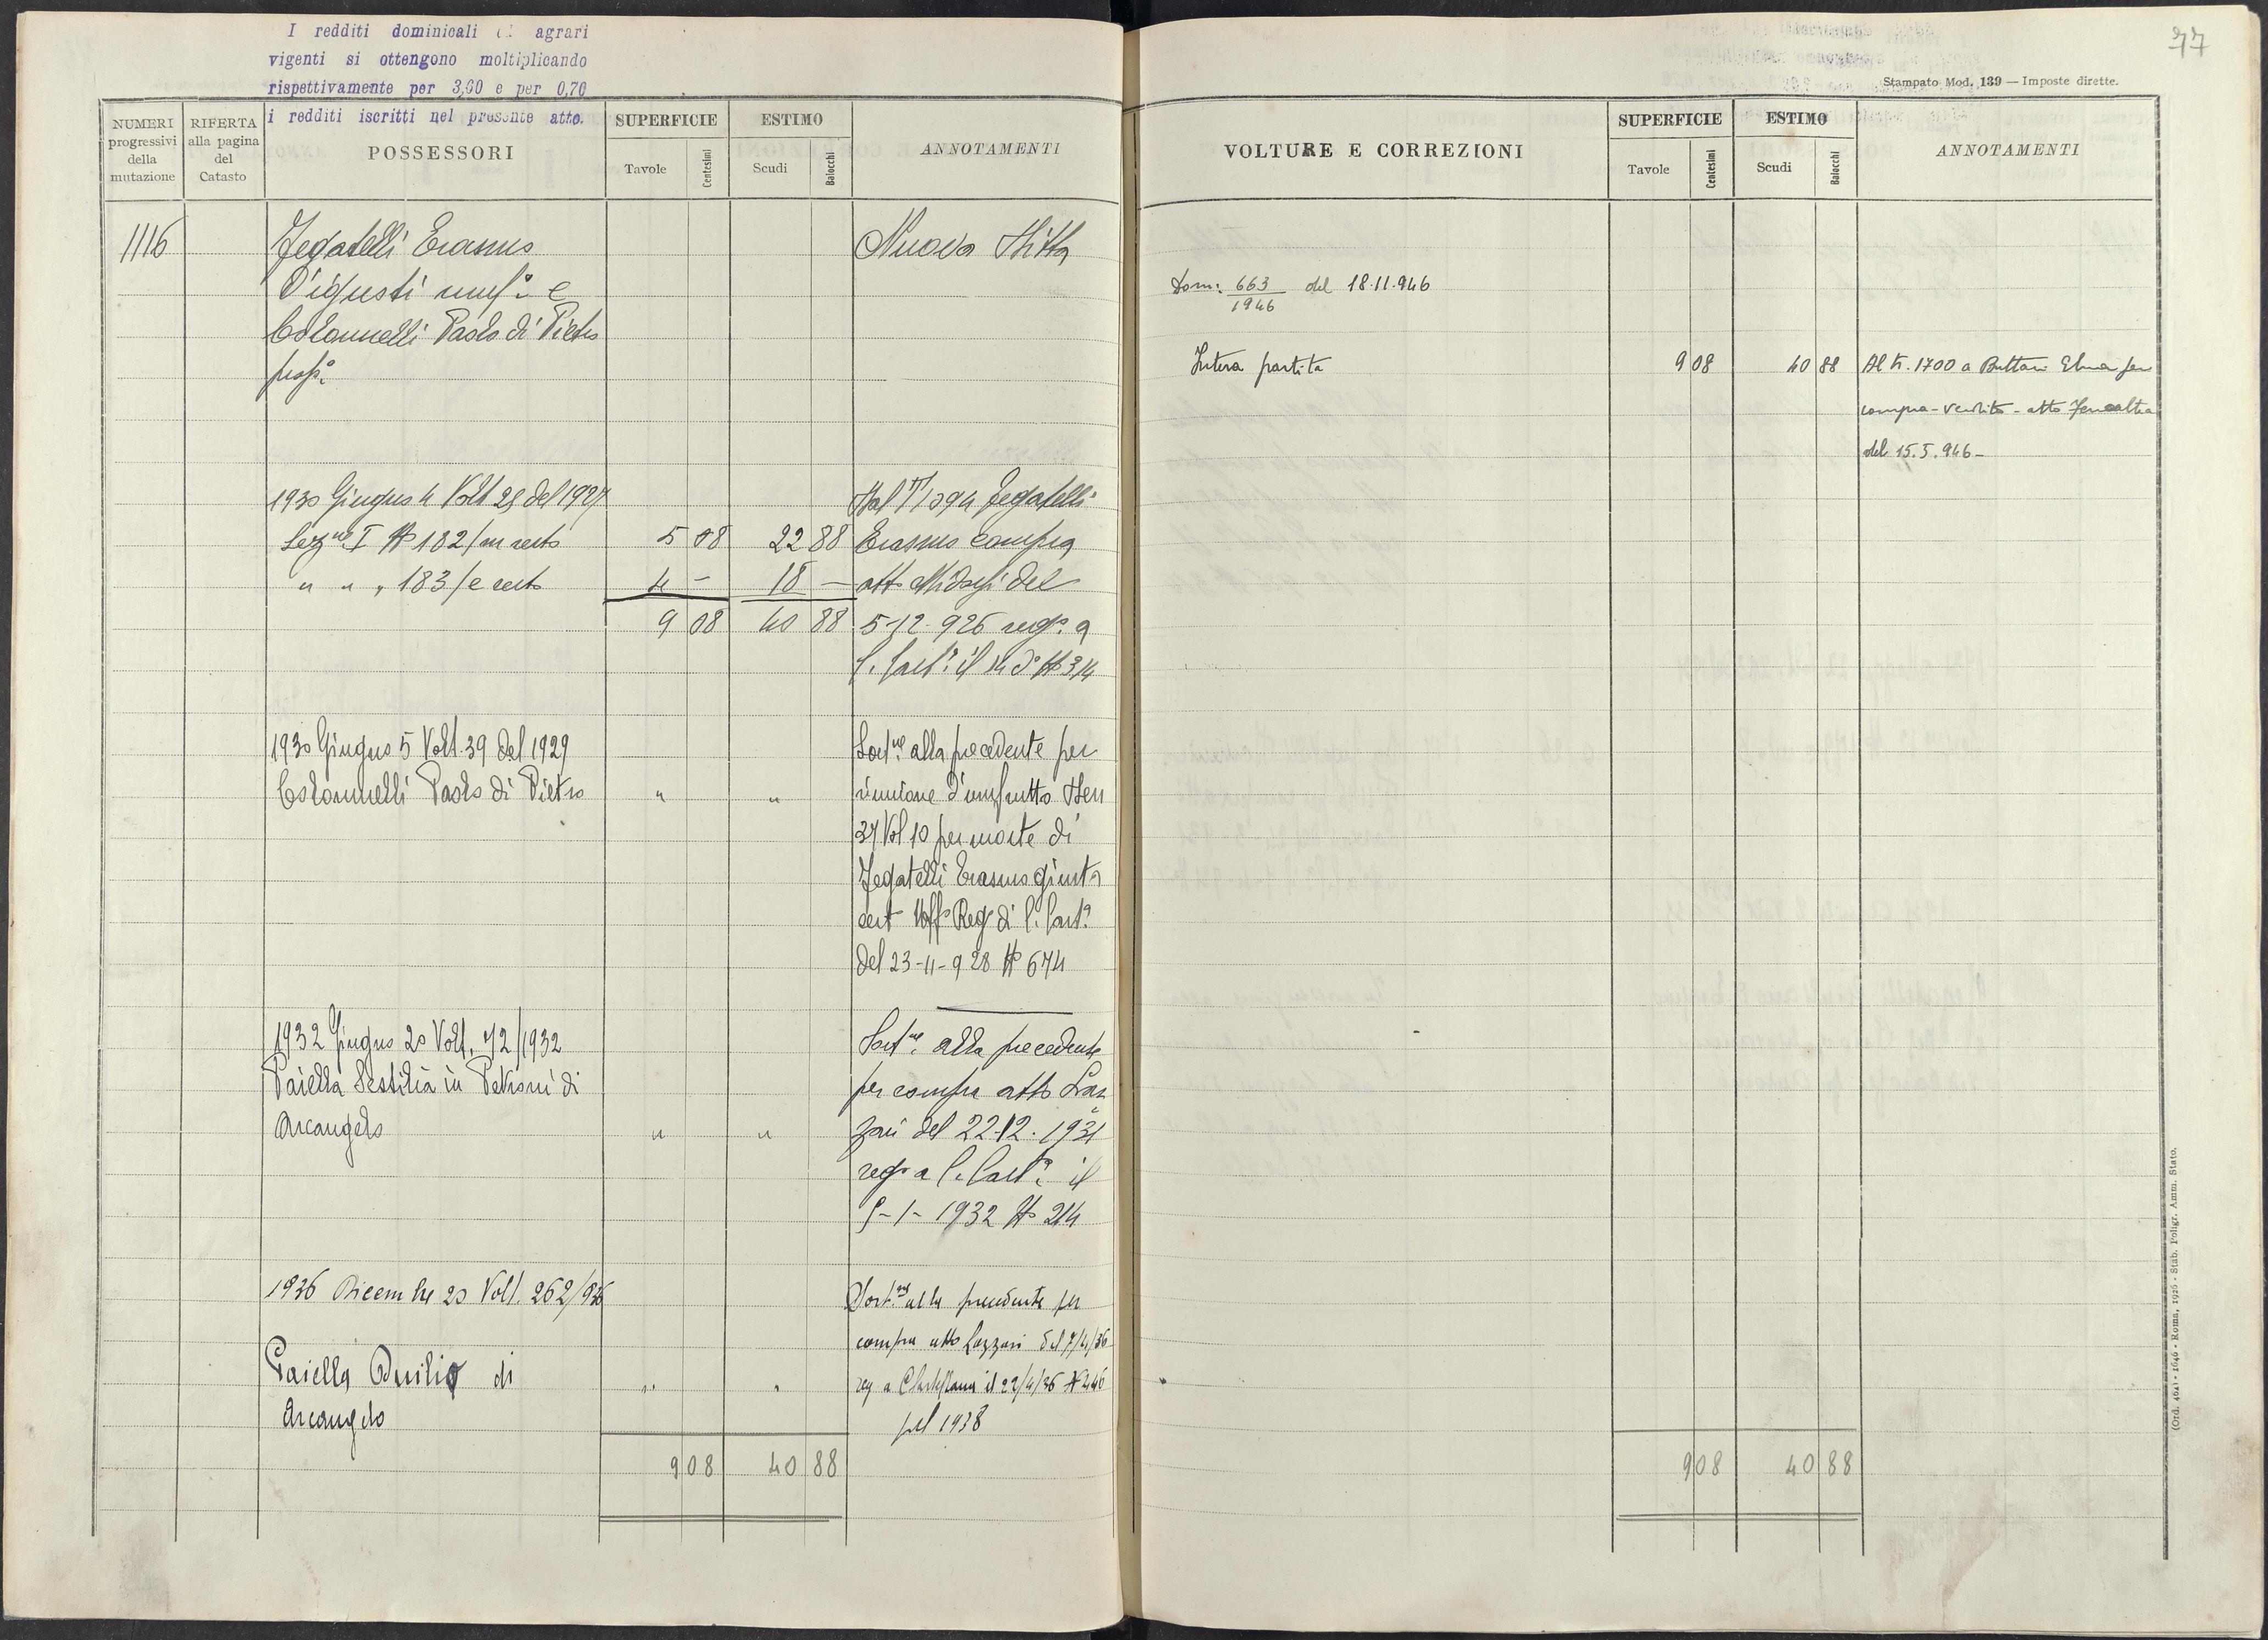 I redditi dominicali ed agrari
vigenti si ottengono moltiplicando
rispettivamente per 3,60 e per 0,70
i redditi iscritti nel presente atto.
NUMERI progressivi della mutazione
RIFERTA alla pagina del Catasto
POSSESSORI
SUPERFICIE
Tavole Centesimi
ESTIMO
Scudi Baiocchi
ANNOTAMENTI
1116 Fegatelli Erasmo Nuova Ditta
usuf.º e
Colonnelli Paolo di Pietro
prop.º
1930 Giugno 4 Volt 25 del 1927 Dal Nº 1094 Fegatelli
Sezne I Nº 182/m resto 5 08 22 88 Erasmo compra
" " " 183/e resto 4 - 18 - atto Midossi del
9 08 40 88 5-12-926 regº a
C. Castª il 14 dº Nº 314
1930 Giugno 5 Volt. 39 del 1929 Sostne alla precedente per
Colonnelli Paolo di Pietro " " riunione d'usufrutto Den
37 Vol 10 per morte di
Fegatelli Erasmo giusta
cert Uffº Regº di C. Castª
del 23-11-928 Nº 674
1932 Giugno 20 Volt. 72/1932 Sostne alla precedente
Paiella Sestilia in Petroni di per compra atto Laz
Arcangelo " " zari del 22-12-1931
regº a C. Castª il
9-1-1932 Nº 214
1936 Dicembre 20 Volt. 262/936 Sostne alla precedente per
compra atto Lazzari del 7/4/36
Paiella Duilio di " " reg a C Castellana il 22/4/36 Nº 446
Arcangelo pel 1938
9 08 40 88
77
Stampato Mod. 139 — Imposte dirette.
VOLTURE E CORREZIONI
SUPERFICIE
Tavole Centesimi
ESTIMO
Scudi Baiocchi
ANNOTAMENTI
Dom: 663/1946 del 18.11.946
Intera partita 9 08 40 88 Al Nº 1700 a Elena per
compra-vendita - atto
del 15.5.946 -
9 08 40 88
(Ord. 464) - 1646 - Roma, 1926 - Stab. Poligr. Amm. Stato.